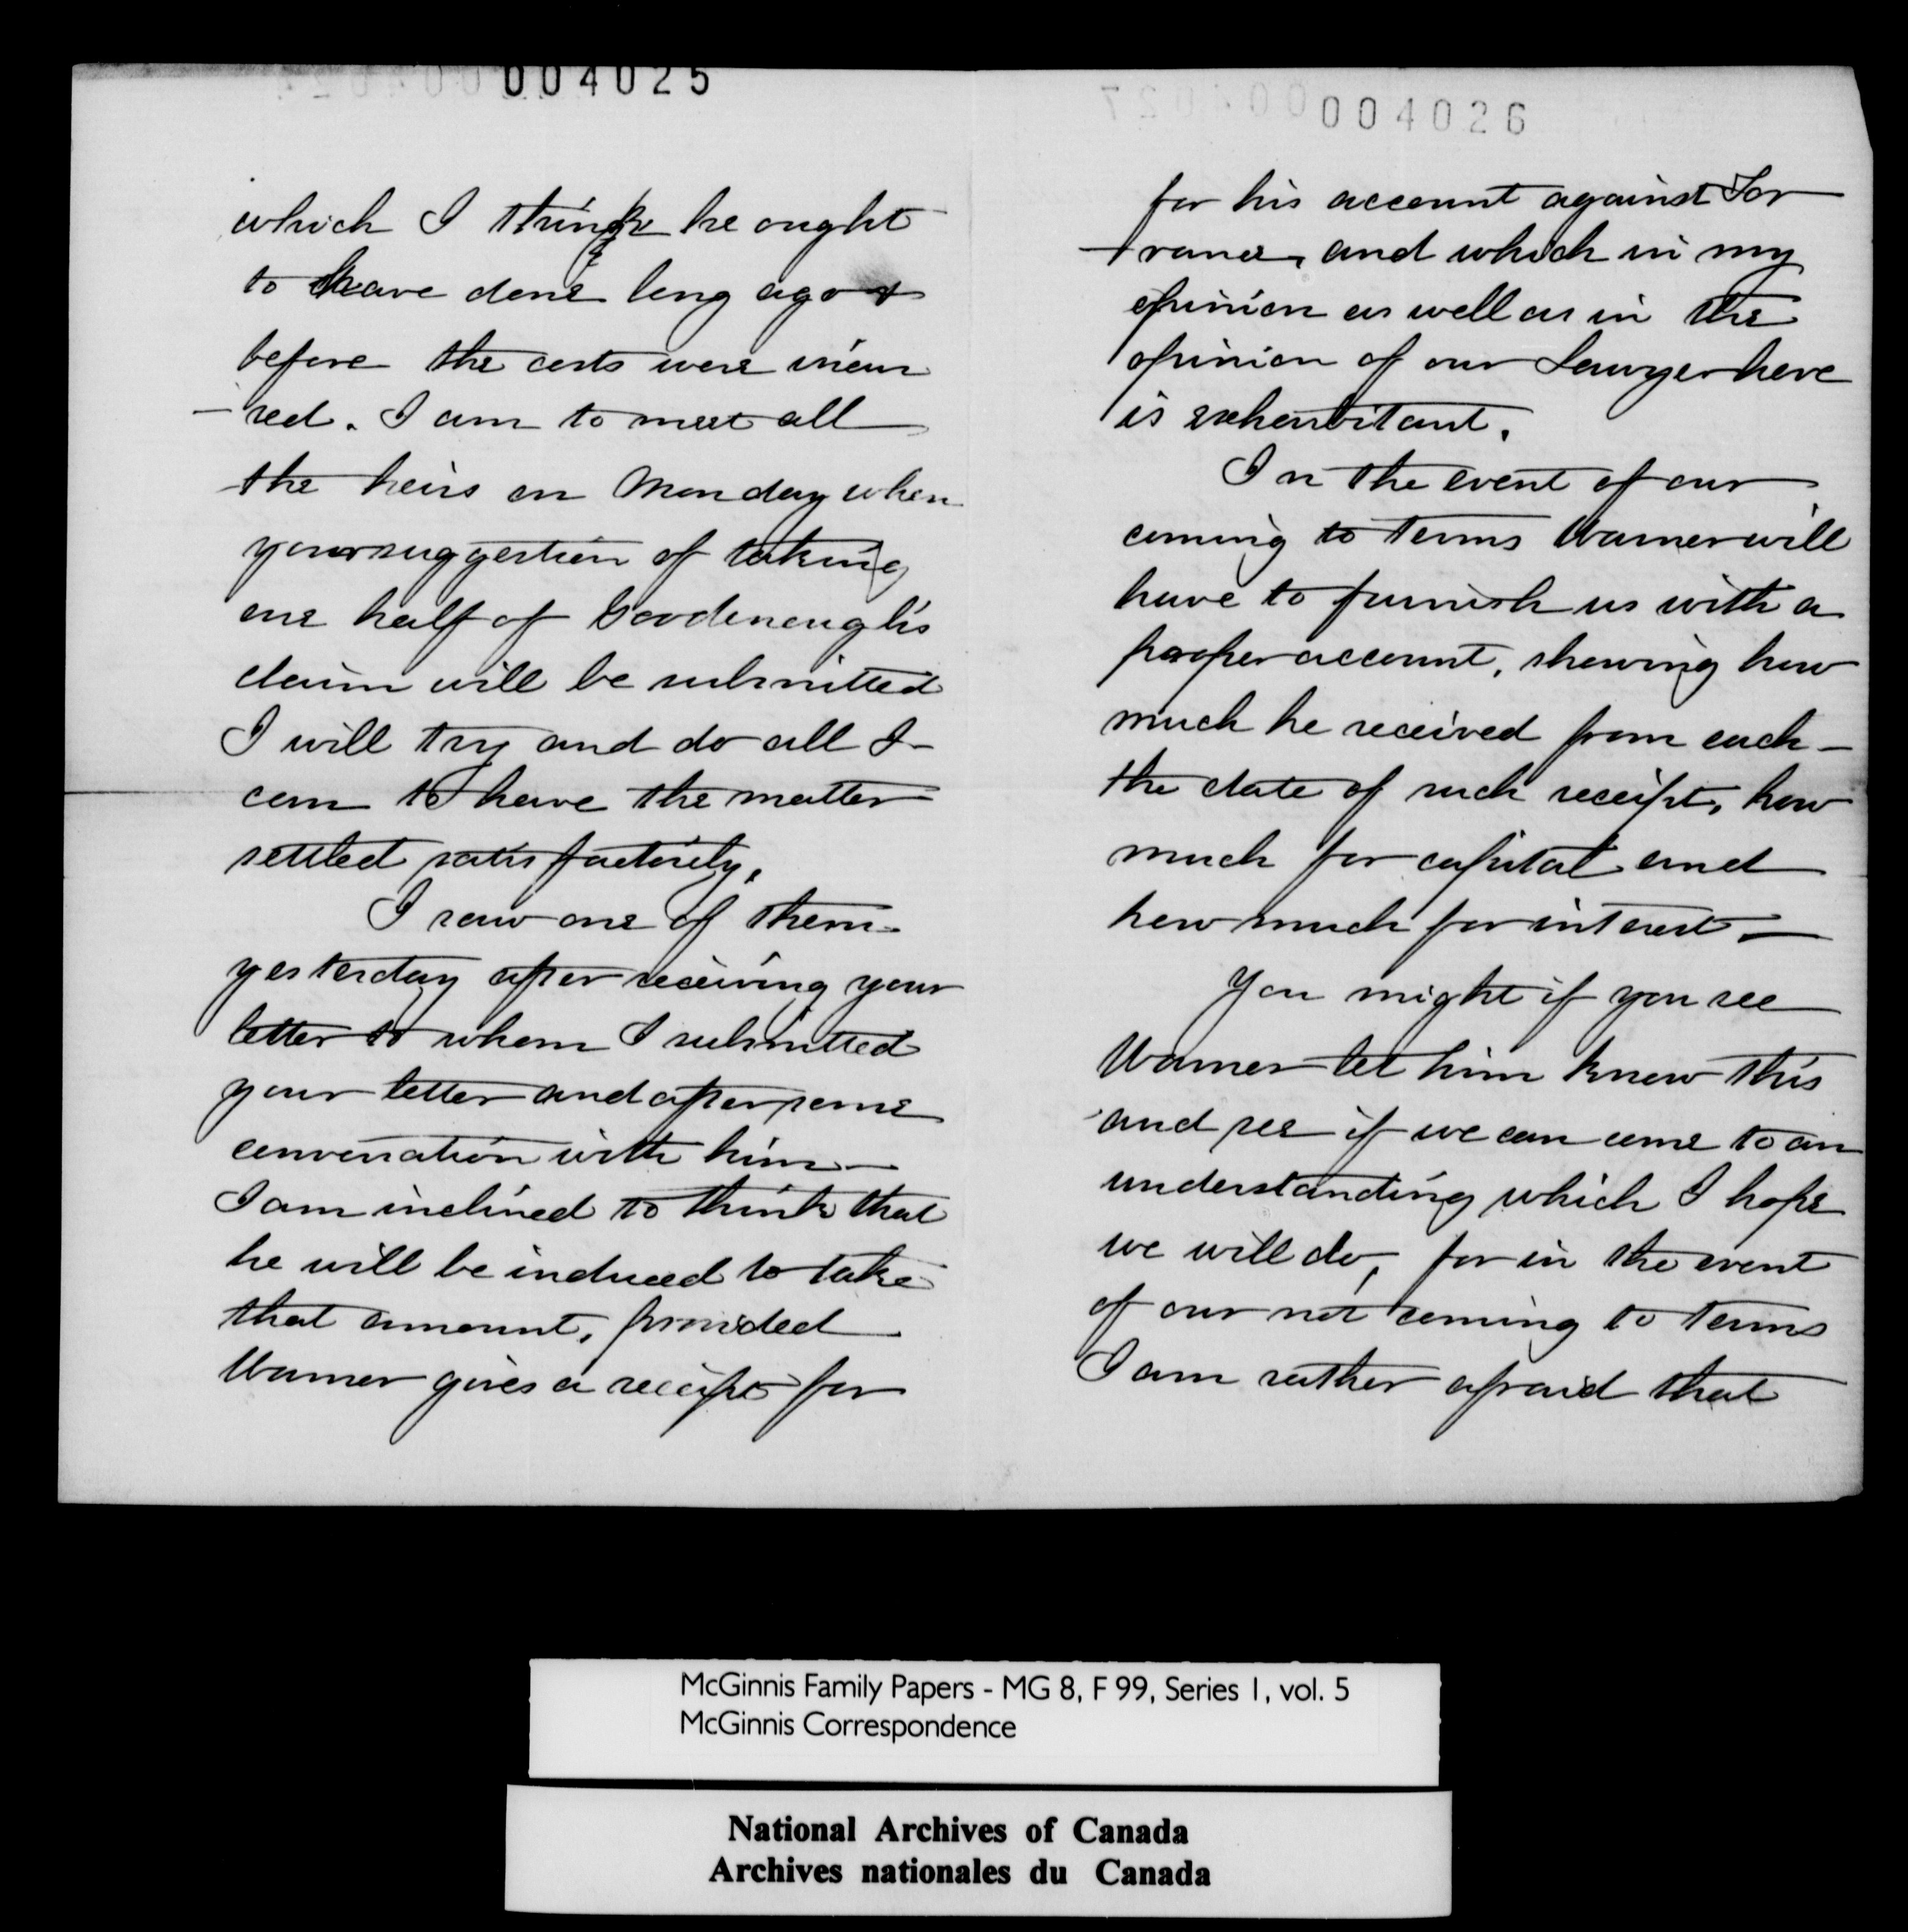 004025
which I think he ought
to have done long ago &
before the costs were incur
- red. I am to meet all
the heirs on Monday when
your suggestion of taking
one half of Goodenough's
claim will be submitted
I will try and do all I
can to have the matter
settled satisfactorily.
I saw one of them
yesterday after receiving your
letter to whom I submitted
your letter and after some
conversation with him
I am inclined to think that
he will be induced to take
that amount, provided
Warner gives a receipt for
004026
for his account against Tor
- rance, and which in my
opinion as well as in the
opinion of our Lawyer here
is exhorbitant.
In the event of our
coming to terms Warner will
have to furnish us with a
proper account, shewing how
much he received from each -
the date of such receipt, how
much for capital and
how much for interest. —
You might if you see
Warner let him know this
and see if we can come to an
understanding which I hope
we will do, for in the event
of our not coming to terms
I am rather afraid that
McGinnis Family Papers - MG 8, F 99, Series 1, vol. 5
McGinnis Correspondence
National Archives of Canada
Archives nationales du Canada